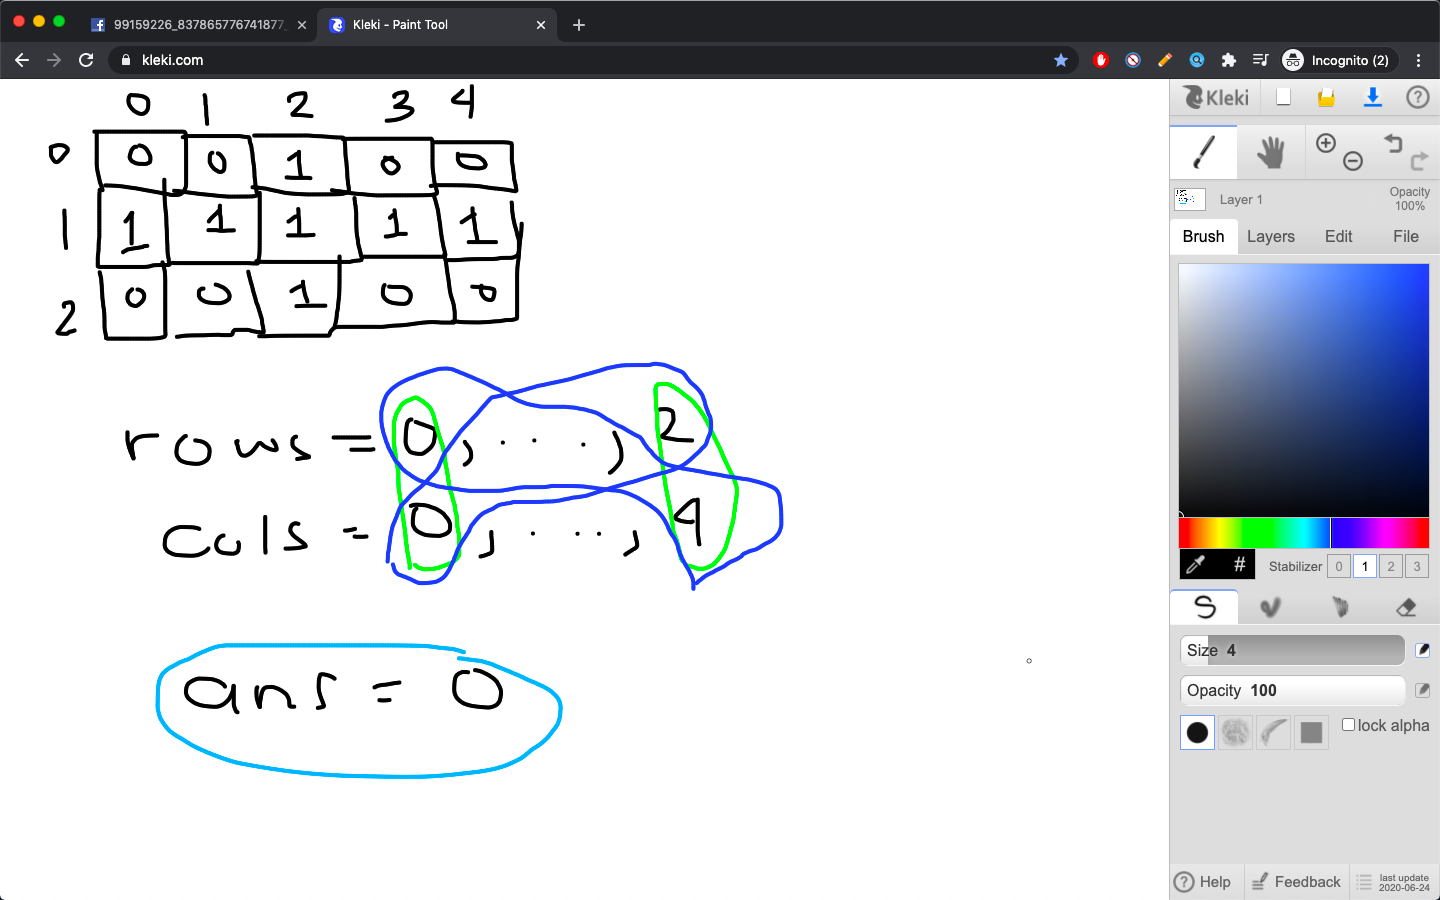 99159226_837865776741877_
Kleki - Paint Tool
kleki.com
Incognito (2)
0 1 2 3 4
0 0 0 1 0 0
1 1 1 1 1 1
2 0 0 1 0 0
rows = 0, . . . , 2
cols = 0, . . . , 4
ans = 0
Kleki
Layer 1
Opacity
100%
Brush Layers Edit File
# Stabilizer 0 1 2 3
Size 4
Opacity 100
lock alpha
Help Feedback last update
2020-06-24